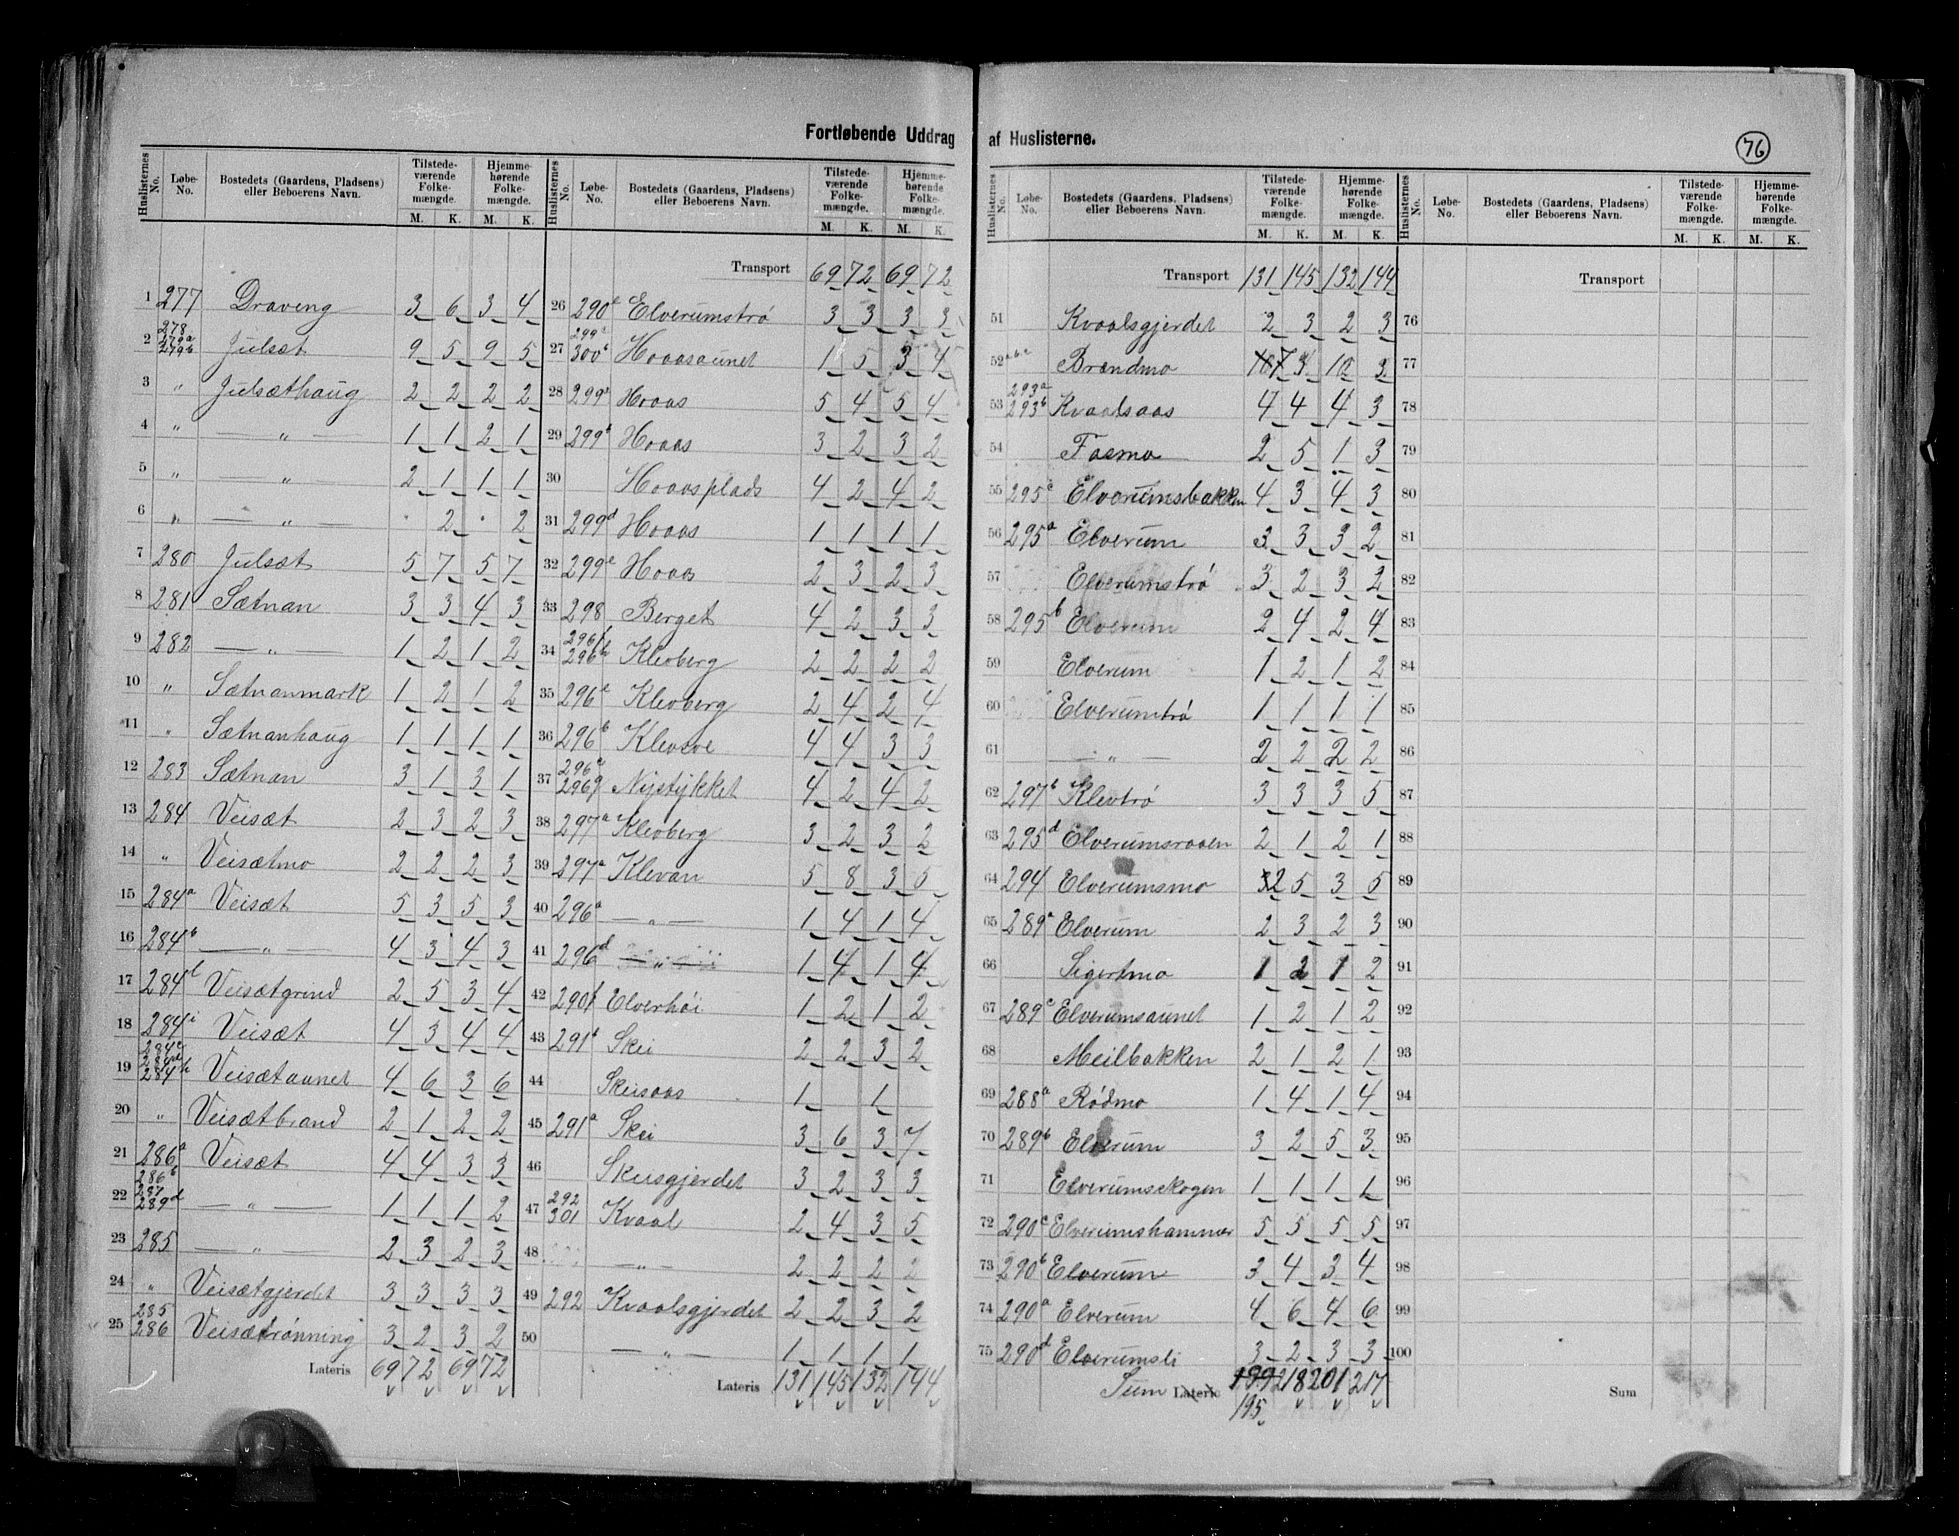 Fortløbende Uddrag af Huslisterne.
76
Huslisternes No. Løbe-No. Bostedets (Gaardens, Pladsens) eller Beboerens Navn. Tilstedeværende Folkemængde. M. K. Hjemmehørende Folkemængde. M. K.
1 277 Draveng 3 6 3 4
2 278 279a 279b Julsæt 9 5 9 5
3 " Julsæthaug 2 2 2 2
4 " — " — 1 1 2 1
5 " — " — 2 1 1 1
6 " — " — . 2 . 2
7 280 Julsæt 5 7 5 7
8 281 Sætnan 3 3 4 3
9 282 — " — 1 2 1 2
10 " Sætnanmark 1 2 1 2
11 " Sætnanhaug 1 1 1 1
12 283 Sætnan 3 1 3 1
13 284 Veisæt 2 3 2 3
14 " Veisætmo 2 2 2 3
15 284a Veisæt 5 3 5 3
16 284b — " — 4 3 4 3
17 284f Veisætgrind 2 5 3 4
18 284i Veisæt 4 3 4 4
19 284c 284d 284h Veisætaunet 4 6 3 6
20 " Veisætbrand 2 1 2 2
21 286a Veisæt 4 4 3 3
22 286b 287 289d — " — 1 1 1 2
23 285 — " — 2 3 2 3
24 " Veisætgjerdet 3 3 3 3
25 285 286 Veisætrønning 3 2 3 2
Lateris 69 72 69 72
Huslisternes No. Løbe-No. Bostedets (Gaardens, Pladsens) eller Beboerens Navn. Tilstedeværende Folkemængde. M. K. Hjemmehørende Folkemængde. M. K.
Transport 69 72 69 72
26 290e Elverumstrø 3 3 3 3
27 299a 300b Hoaasaunet 1 5 3 4
28 299 Hoaas 5 4 5 4
29 299 Hoaas 3 2 3 2
30 Hoaasplads 4 2 4 2
31 299d Hoaas 1 1 1 1
32 299e Hoaas 2 3 2 3
33 298 Berget 4 2 3 3
34 296f 296h Klevberg 2 2 2 2
35 296e Klevberg 2 4 2 4
36 296b Kleveve 4 4 3 3
37 296c 296g Nystykket 4 2 4 2
38 297a Klevberg 3 2 3 2
39 297a Klevan 5 8 3 5
40 296a — " — 1 4 1 4
41 296d — " — 1 4 1 4
42 290f Elverhøi 1 2 1 2
43 291b Skei 2 2 3 2
44 Skeisaas 1 1
45 291a Skei 3 6 3 7
46 Skeisgjerdet 3 2 3 3
47 292 301 Kvaal 2 4 3 5
48 — " — 2 2 2 2
49 292 Kvaalsgjerdet 2 2 3 2
50 — " — 1 1 1 1
Lateris 131 145 132 144
Huslisternes No. Løbe-No. Bostedets (Gaardens, Pladsens) eller Beboerens Navn. Tilstedeværende Folkemængde. M. K. Hjemmehørende Folkemængde. M. K.
Transport 131 145 132 144
51 Kvaalsgjerdet 2 3 2 3
52 a b c Brændmo 10 7 3 10 3
53 293a 293b Kvaalsaas 4 4 4 3
54 Fasmo 2 5 1 3
55 295c Elverumsbakken 4 3 4 3
56 295a Elverum 3 3 3 2
57 Elverumstrø 3 2 3 2
58 295b Elverum 2 4 2 4
59 Elverum 1 2 1 2
60 Elverumtrø 1 1 1 1
61 — " — 2 2 2 2
62 297b Klevtrø 3 3 3 5
63 295d Elverumsraaen 2 1 2 1
64 294 Elverumsmo 3 2 5 3 5
65 289a Elverum 2 3 2 3
66 Sigertmo 1 2 1 2
67 289c Elverumsaunet 1 2 1 2
68 Meilbakken 2 1 2 1
69 288a Rødmo 1 4 1 4
70 289b Elverum 3 2 5 3
71 Elverumsskogen 1 1 1 1
72 290c Elverumshammer 5 5 5 5
73 290b Elverum 3 4 3 4
74 290a Elverum 4 6 4 6
75 290d Elverumsli 3 2 3 3
Sum Lateris 199 218 201 217
195
Huslisternes No. Løbe-No. Bostedets (Gaardens, Pladsens) eller Beboerens Navn. Tilstedeværende Folkemængde. M. K. Hjemmehørende Folkemængde. M. K.
Transport
76
77
78
79
80
81
82
83
84
85
86
87
88
89
90
91
92
93
94
95
96
97
98
99
100
Sum